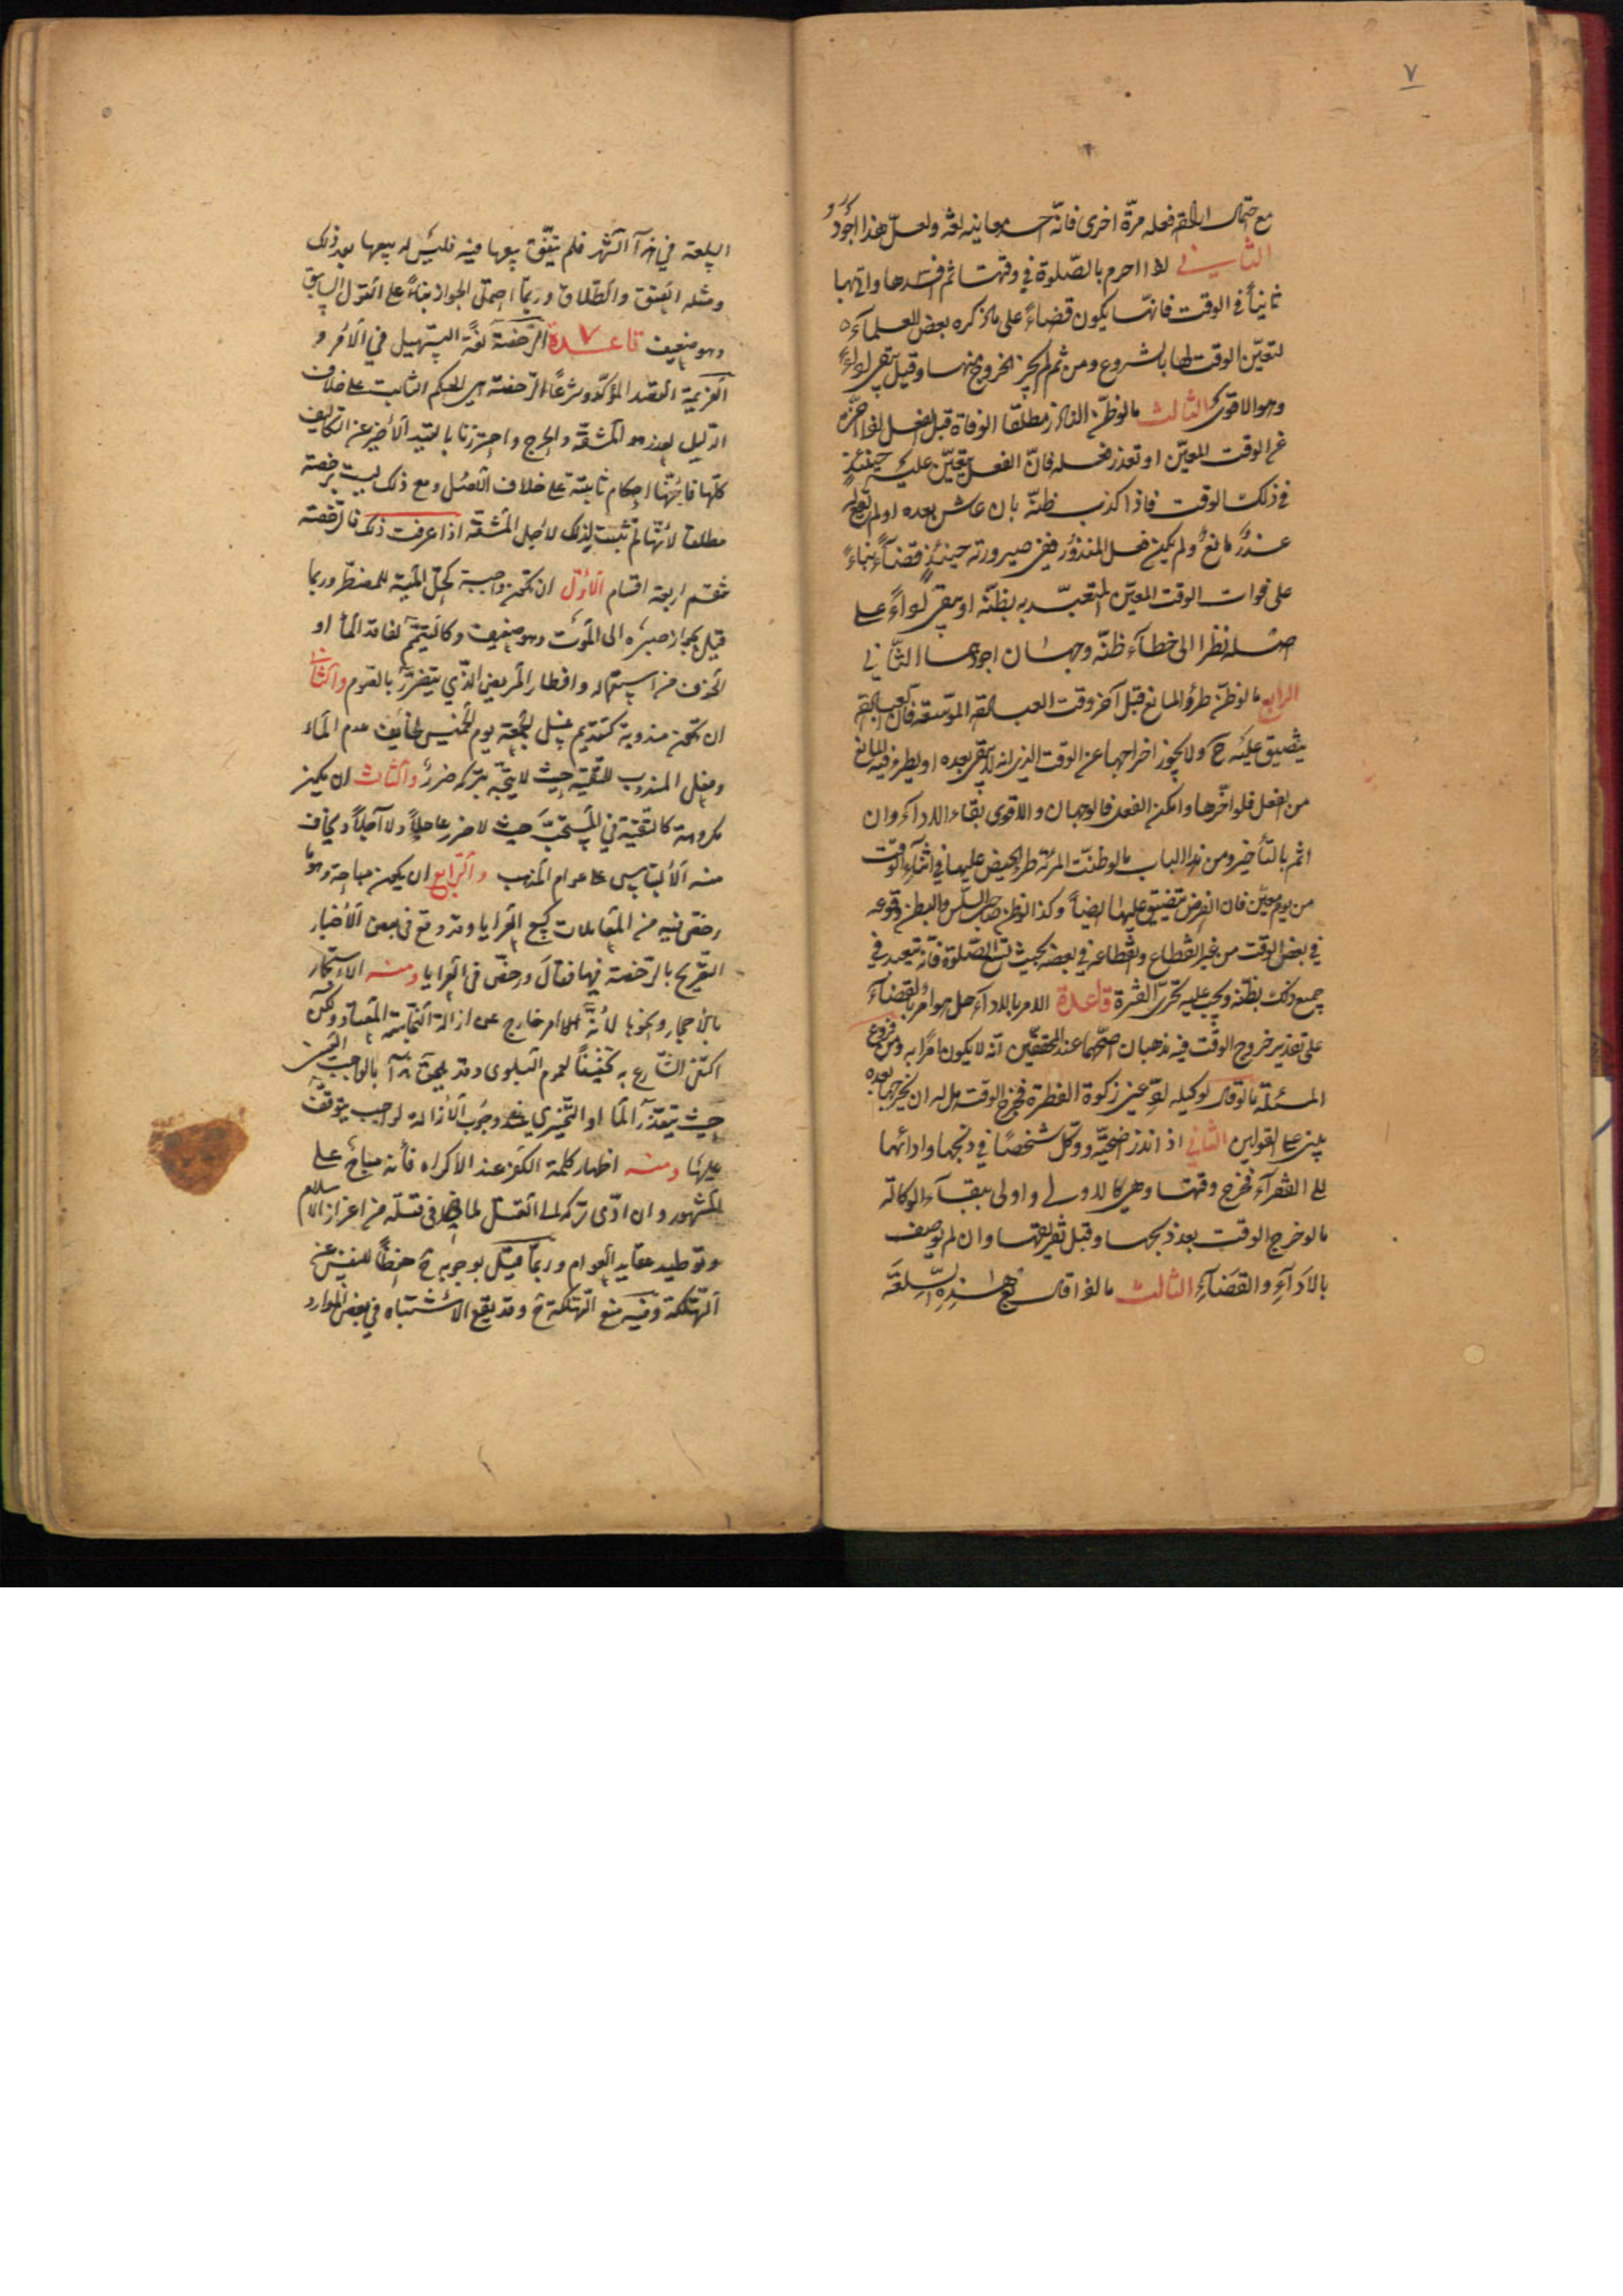 ٧
مع احتمال الحقه فعله مرّة اخرى فانّه احد معانيه لغة ولعلّ هذا اجود و
الثاني لو احرم بالصّلوة في وقتها ثم افسدها واتى بها
ثانياً في الوقت فانّها يكون قضاءً على ما ذكره بعض العلماء
لتعيّن الوقت لها بالشروع ومن ثم لم يجز الخروج منها وقيل يبقى اداءً
وهو الاقوى الثالث ما لو ظنّ الناذر مطلقا الوفاة قبل الفعل لو اخّره
عن الوقت المعيّن او تعذر فعله فانّ الفعل يتعيّن عليه حينئذٍ
في ذلك الوقت فاذا كذب ظنّه بان عاش بعده او لم يقع له
عذر مانع ولم يكن فعل المنذور ففي صيرورته حينئذٍ قضاءً بناءً
على فوات الوقت المعيّن المتعبّد به بظنّه او يبقى اداءً على
اصله نظرا الى خطاء ظنّه وجهان اجودهما الثّاني
الرابع ما لو ظنّ طرؤ المانع قبل آخر وقت العبادة الموسّعة فان العبادة
يتضيق عليه ح ولا يجوز اخراجها عن الوقت الذي لا يبقى بعده او يطرء فيه المانع
من الفعل فلو اخّرها وامكن الفعل فالوجهان والاقوى بقاء الاداء وان
اثم بالتأخير ومن هذا الباب ما لو ظنّت المرئة طرء الحيض عليها في اثناء الوقت
من يوم معيّن فان الفرض يتضيق عليها ايضاً وكذا لو ظن صاحب السّلس والبطن وقوعه
في بعض الوقت من غير انقطاع وانقطاعه في بعضه بحيث تسع الصّلوة فانّه يتعبد في
جميع ذلك بظنّه ويجب عليه تحرّي الفترة قاعدة الامر بالاداء هل هو امر بالقضاء
على تقدير خروج الوقت فيه مذهبان اصحّهما عند المحققين انّه لا يكون امراً به ومن فروع
المسئلة ما لو قال لوكيله ادّ عني زكوة الفطرة فخرج الوقت هل له ان يخرجها بعده
يبنى على القولين الثاني اذا نذر اضحيّة ووكّل شخصاً في ذبحها وادائها
الى الفقرآء فخرج وقتها وهي كالاولى واولى ببقاء الوكالة
ما لو خرج الوقت بعد ذبحها وقبل تفريقها وان لم يوصف
بالاداءِ والقضاءِ الثالث ما لو قال بع هذه السّلعة
السّلعة في هذا الشّهر فلم يتّفق بيعها فيه فليس له بيعها بعد ذلك
ومثله العتق والطّلاق وربّما احتمل الجواز بناءً على القول السابق
وهو ضعيف قاعدة ٧ الرّخصة لغةً التسهيل في الأمر و
العزيمة القصد المؤكّد وشرعاً الرّخصة هي الحكم الثابت على خلاف
الدّليل لعذر هو المشقّة والحرج واحترزنا بالقيد الأخير عن التكاليف
كلّها فانّها احكام ثابتة على خلاف الاصل ومع ذلك ليست برخصة
مطلقا لأنّها لم تثبت كذلك لاجل المشقّة اذا عرفت ذلك فالرّخصة
تنقسم اربعة اقسام الأوّل ان تكون واجبة كحلّ الميتة للمضطر وربما
قيل بجواز صبره الى الموت وهو ضعيف وكالتيمّم لفاقد الماء او
الخوف من استعماله وافطار المريض الّذي يتضرّر بالصّوم والثاني
ان تكون مندوبة كتقديم غسل الجمعة يوم الخميس لخائف عدم الماء
وفعل المندوب للتقيّة حيث لا يتّجه بتركه ضررٌ والثالث ان يكون
مكروهة كالتقيّة في المستحبّ حيث لا ضرر عاجلاً ولا آجلاً ويخاف
منه الألتباس على عوام المذهب والرّابع ان يكون مباحة وهو ما
رخص فيه من المعاملات كبيع العرايا وقد وقع في بعض الأخبار
التصريح بالرّخصة فيها فقال ورخّص في العرايا ومنه الاستجمار
بالأحجار ونحوها لأنّه امر خارج عن ازالة النّجاسة المعتادة ولكن
اكتفى الشّارع به تخفيفاً لعموم البلوى وقد يلحق بالواجب
حيث يتعذّر الماء او التحرّي عند وجوب الأزالة لواجب يتوقّف
عليها ومنه اظهار كلمة الكفر عند الاكراه فانّه مباح على
المشهور وان ادّى تركه الى القتل لما في قتله من اعزاز الاسلام
وتوطيد عقايد العوام وربّما قيل بوجوبه ح حفظاً للنفس عن
التّهلكة وفيه منع التّهلكة ح وقد يقع الأشتباه في بعض الموارد